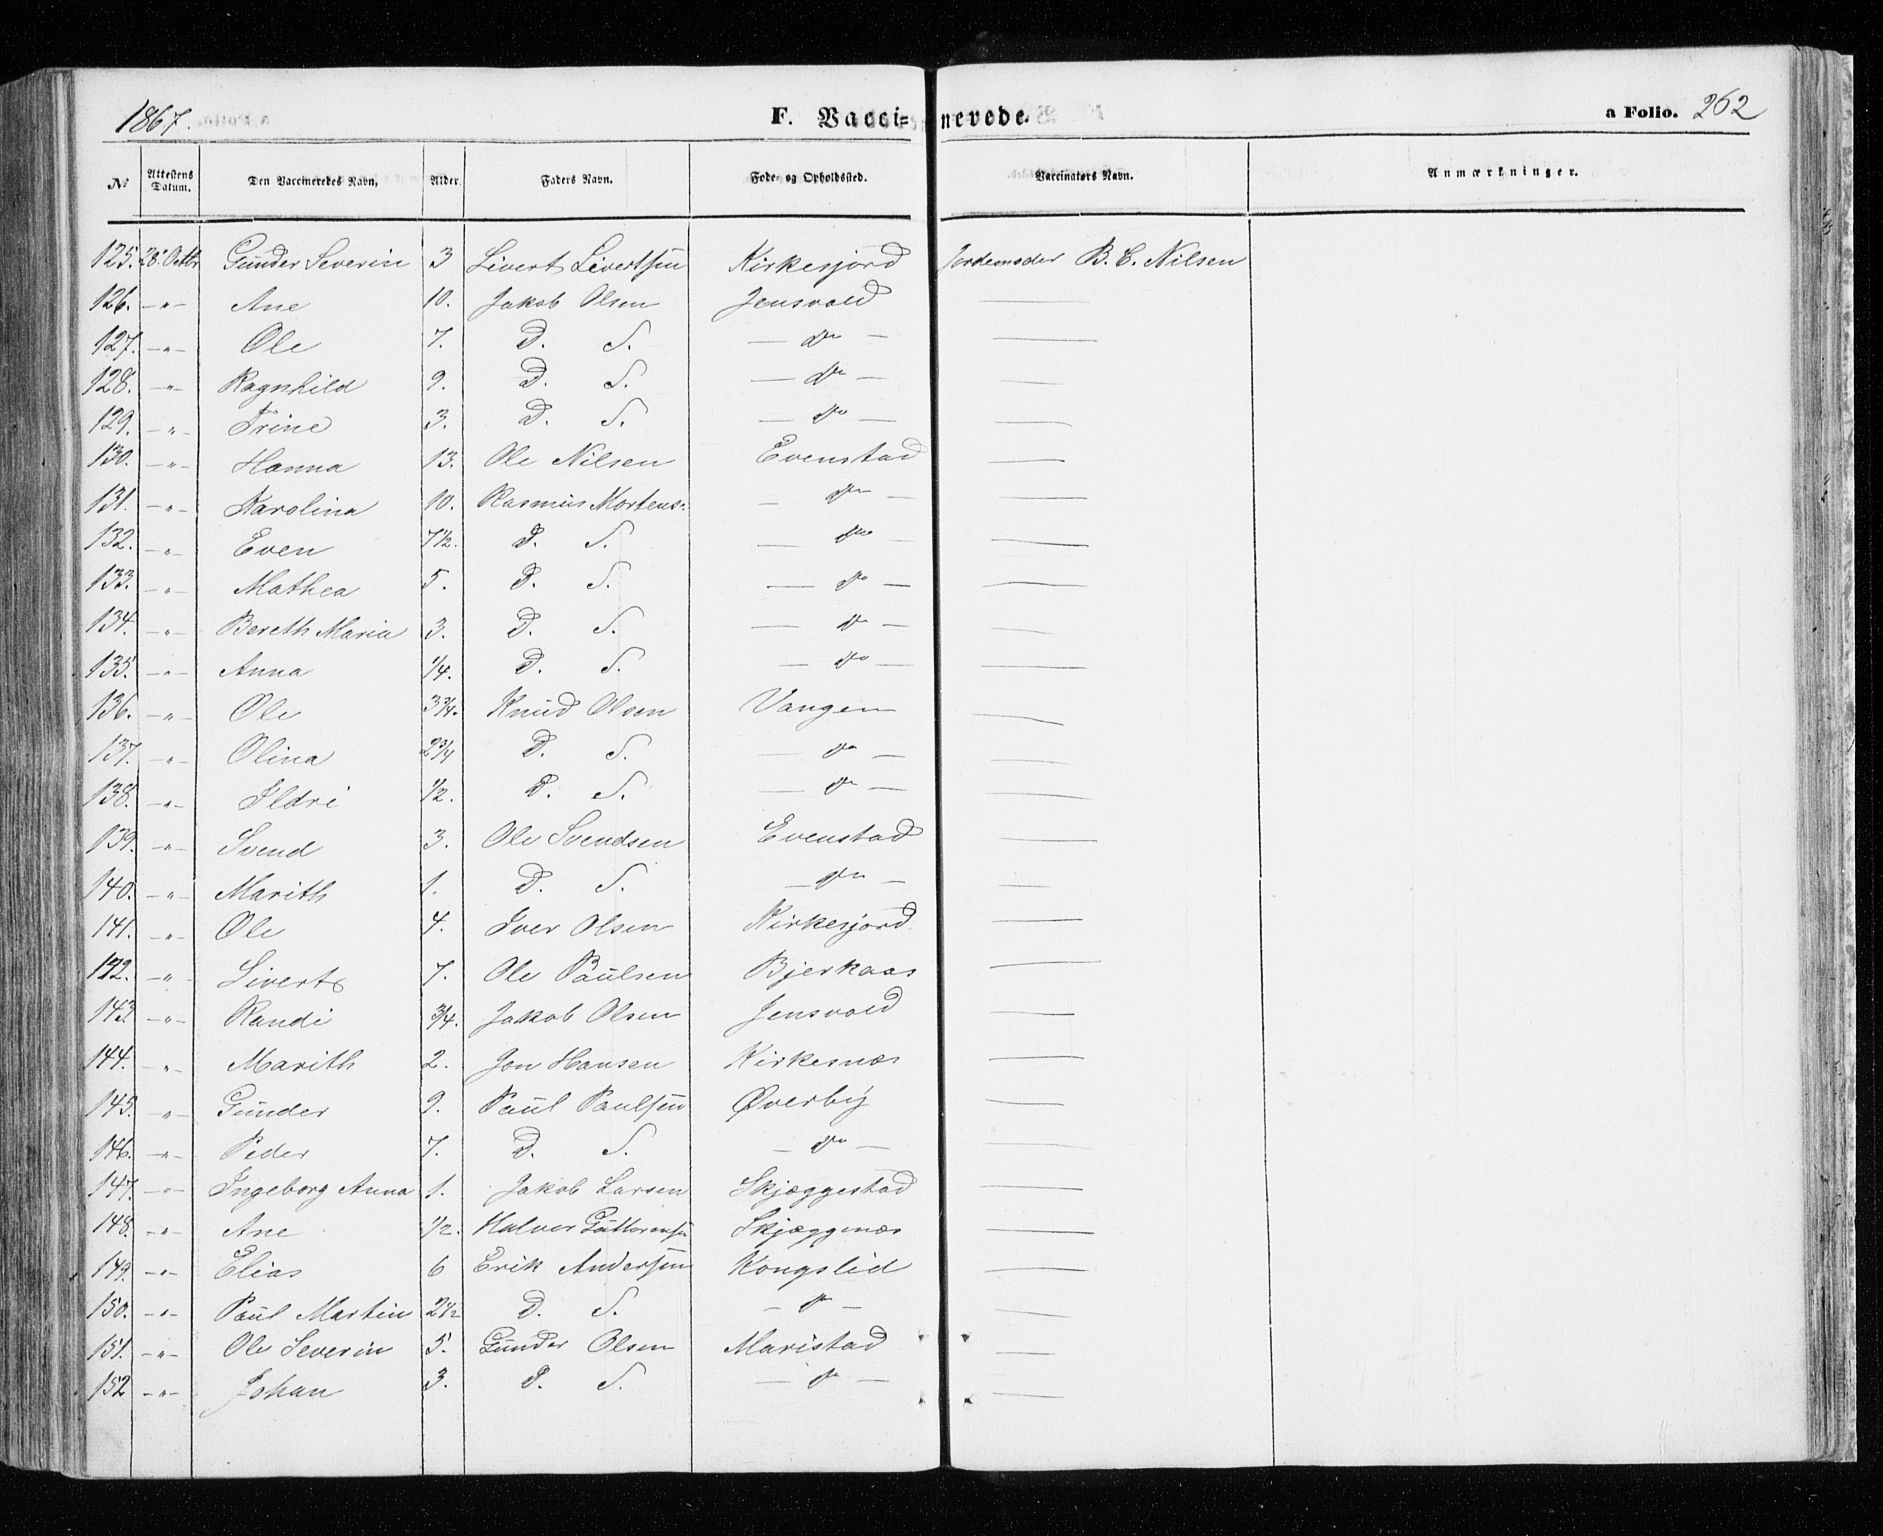 1867.
F. Vaccinerede.
a Folio. 262
No Attestens Datum. Den Vaccineredes Navn, Alder. Faders Navn. Føde- og Opholdssted. Vaccinators Navn. Anmærkninger.
125. 28. Octbr Gunder Severin 3 Sivert Sivertsen Kirkesjord Jordemoder B. C. Nilsen
126. -"- Ane 10. Jakob Olsen Jensvold —
127. -"- Ole 7. D. S. — do — —
128. -"- Ragnhild 9. D. S. — do — —
129. -"- Trine 3. D. S. — do — —
130. -"- Hanna 13. Ole Nilsen Evenstad —
131. -"- Karolina 10. Rasmus Mortens: — do — —
132. -"- Even 7½. D. S. — do — —
133. -"- Mathea 5. D. S. — do — —
134. -"- Bereth Maria 3. D. S. — do — —
135. -"- Anna 1/4. D. S. — do — —
136. -"- Ole 3¾. Knud Olsen Vangen —
137. -"- Olina 2¾ D. S. — do — —
138. -"- Ildri ½. D. S. — do — —
139. -"- Svend 3. Ole Svendsen Evenstad —
140. -"- Marith 1. D. S. — do — —
141. -"- Ole 4. Iver Olsen Kirkesjord —
142. -"- Sivert 7. Ole Paulsen Bjerkaas —
143. -"- Randi ¾. Jakob Olsen Jensvold —
144. -"- Marith 2. Jon Hansen Kirkesnæs —
145. -"- Gunder 9. Paul Paulsen Øverby —
146. -"- Peder 7. D. S. — do — —
147. -"- Ingeborg Anna 1. Jakob Larsen Skjæggestad —
148. -"- Ane ½. Halvor Guttormsen Skjæggenæs —
149. -"- Elias 6 Erik Andersen Kongslid —
150. -"- Paul Martin 2½ D. S. — do — —
151. -"- Ole Severin 5. Gunder Olsen Maristad —
152 -"- Johan 3. D. S. — do — —